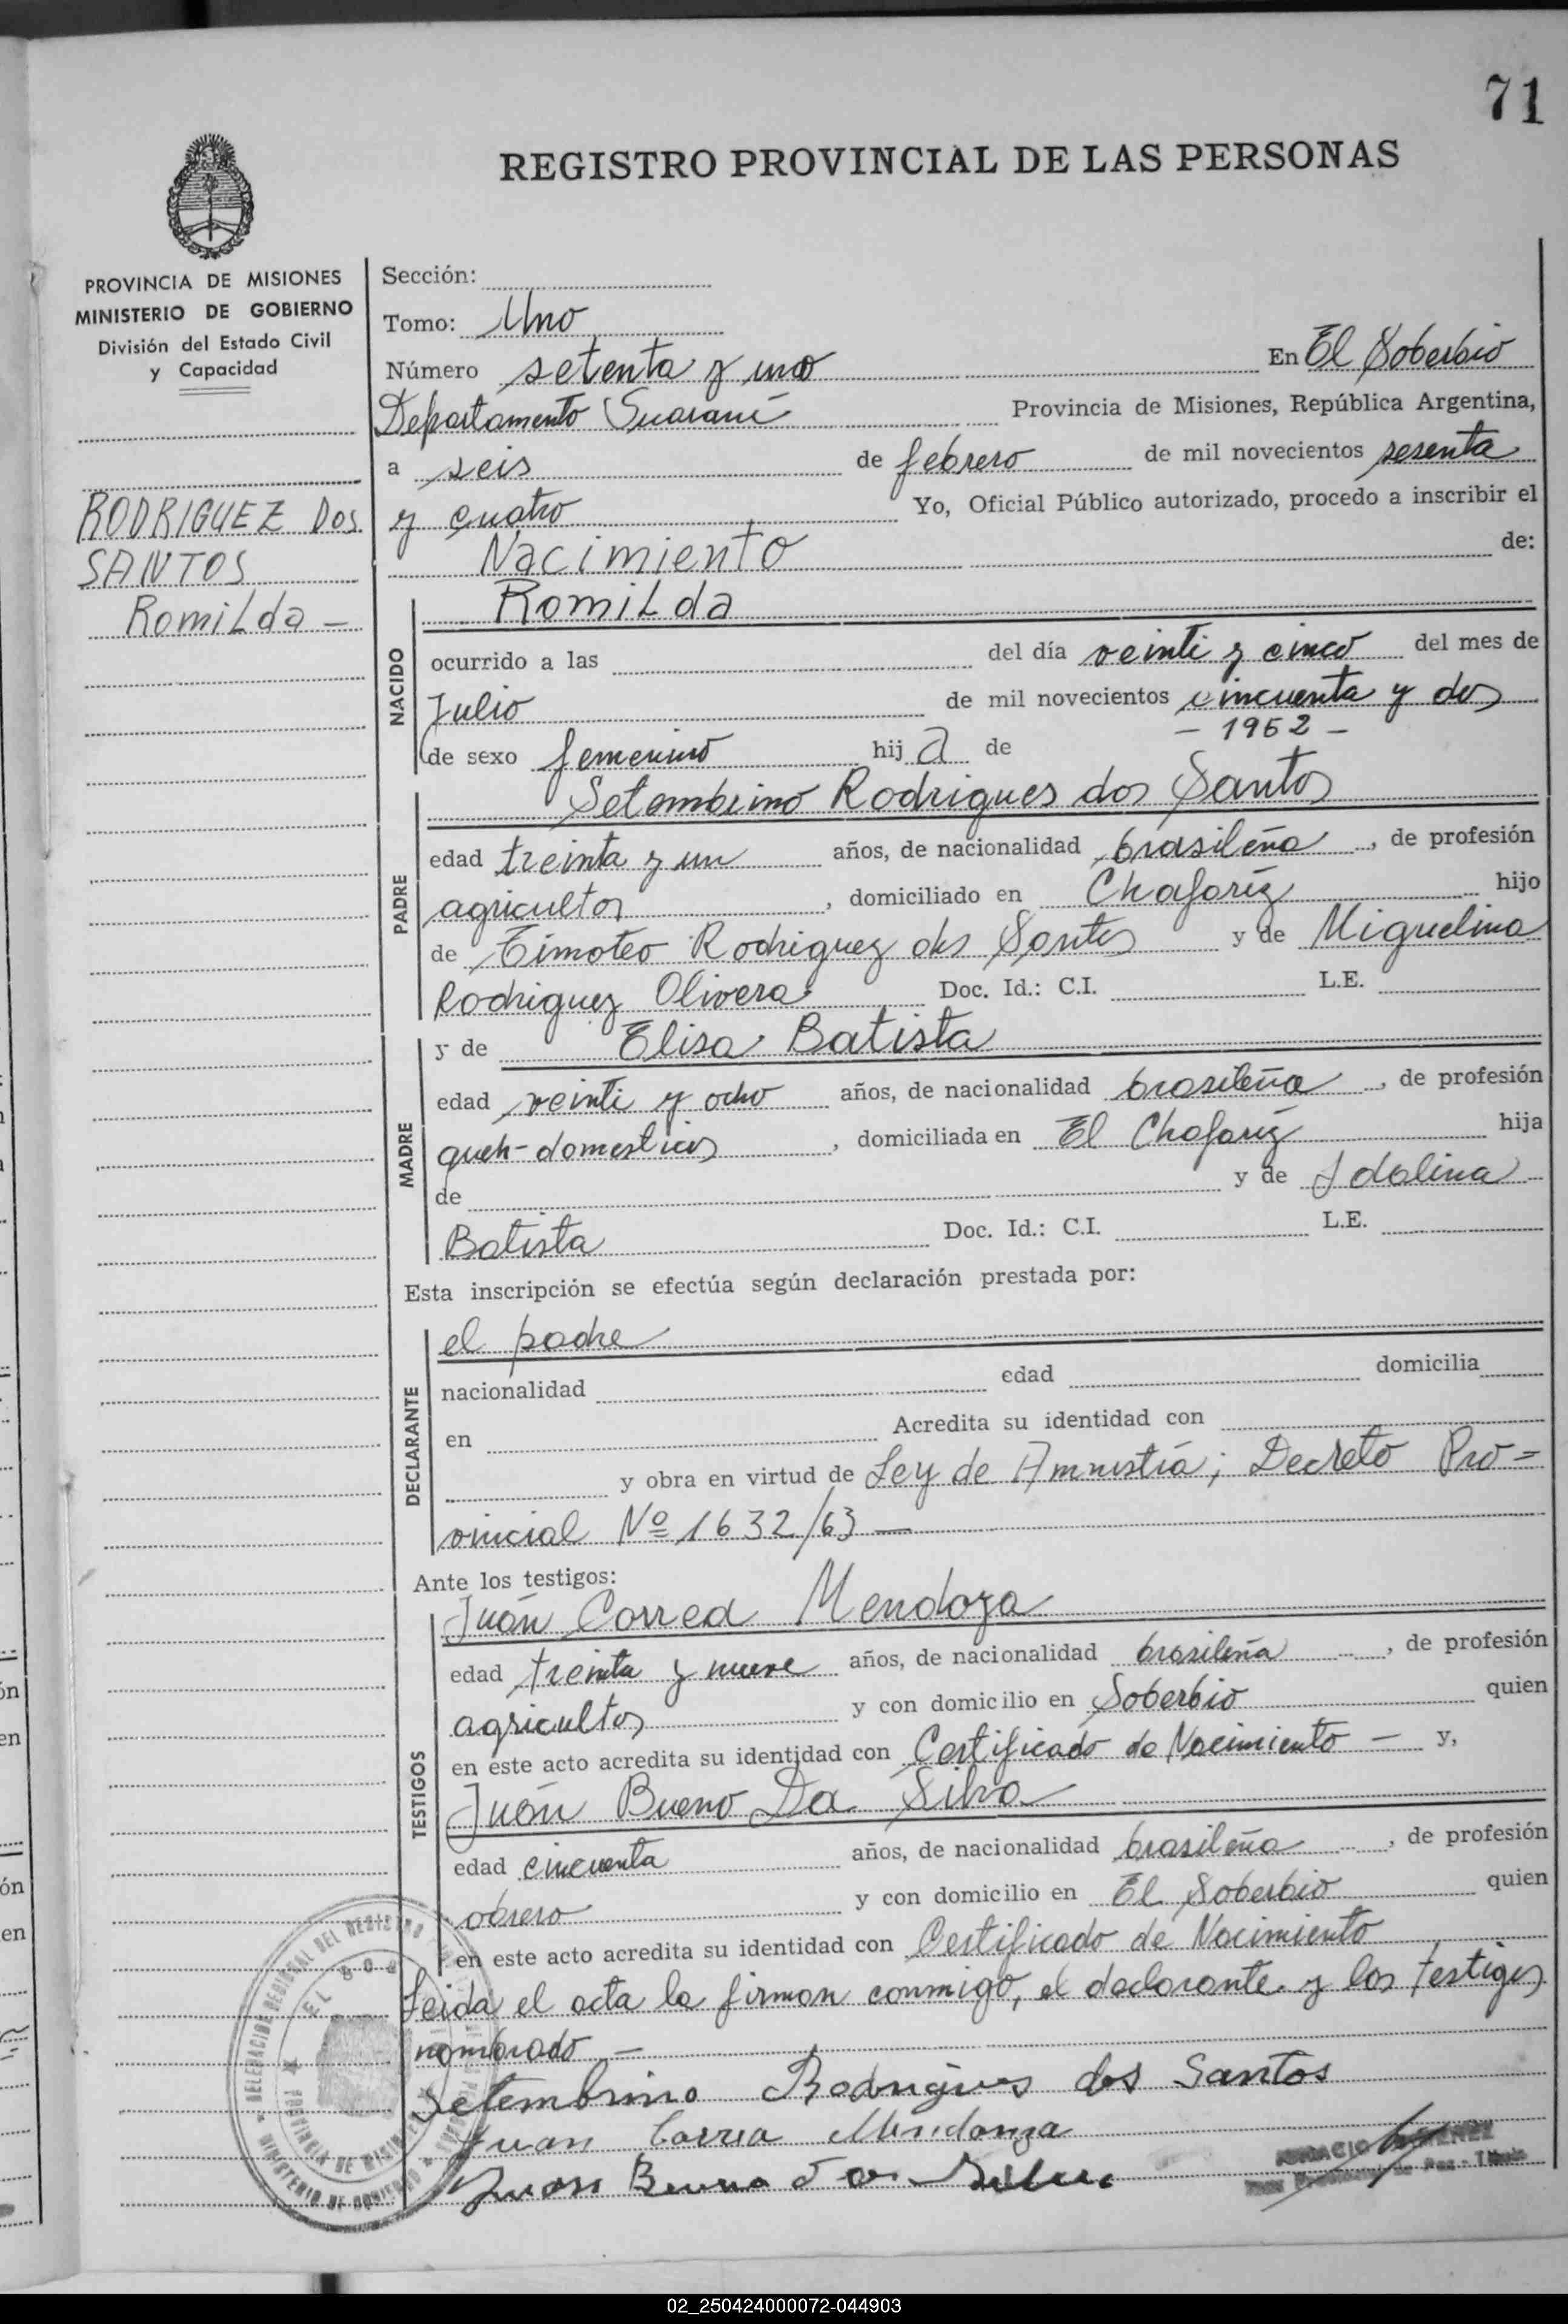 71
REGISTRO PROVINCIAL DE LAS PERSONAS
PROVINCIA DE MISIONES
MINISTERIO DE GOBIERNO
División del Estado Civil
y Capacidad
RODRIGUEZ Dos
SANTOS
RomiLda -
Sección:
Tomo: Uno
Número setenta y uno En El Soberbio
Departamento Guaraní Provincia de Misiones, República Argentina,
a seis de febrero de mil novecientos sesenta
y cuatro Yo, Oficial Público autorizado, procedo a inscribir el
Nacimiento de:
NACIDO
RomiLda
ocurrido a las del día veinti y cinco del mes de
Julio de mil novecientos cincuenta y dos
- 1952 -
de sexo femenino hij a de
PADRE
Setembrino Rodrigues dos Santos
edad treinta y un años, de nacionalidad brasileña, de profesión
agricultor, domiciliado en Chafaríz hijo
de Timoteo Rodriguez dos Santos y de Miguelina
Rodriguez Olivera Doc. Id.: C.I. L.E.
MADRE
y de Elisa Batista
edad veinti y ocho años, de nacionalidad brasileña, de profesión
queh-domesticos, domiciliada en El Chafaríz hija
de y de Idalina
Batista Doc. Id.: C.I. L.E.
Esta inscripción se efectúa según declaración prestada por:
DECLARANTE
el padre
nacionalidad edad domicilia
en Acredita su identidad con
y obra en virtud de Ley de Amnistía; Decreto Pro=
vincial Nº 1632/63 —
Ante los testigos:
TESTIGOS
Juán Correa Mendoza
edad treinta y nueve años, de nacionalidad brasileña, de profesión
agricultor y con domicilio en Soberbio quien
en este acto acredita su identidad con Certificado de Nacimiento — y,
Juán Bueno Da Silva
edad cincuenta años, de nacionalidad brasileña, de profesión
obrero y con domicilio en El Soberbio quien
en este acto acredita su identidad con Certificado de Nacimiento
Leida el acta la firman conmigo, el declarante y los testigos
nombrado —
Setembrino Rodrigues dos Santos
Juan Correa Mendonza
Juan Bueno da Silva
02_250424000072-044903